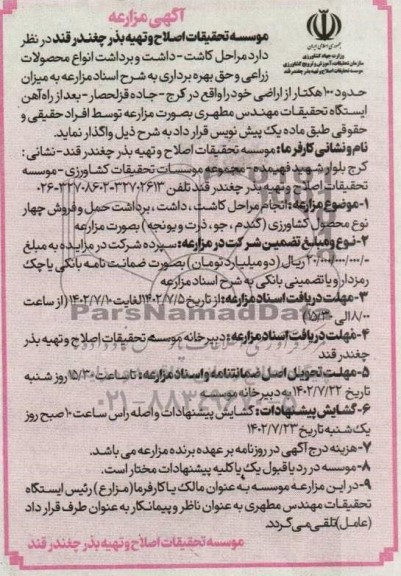 آگهی مزارعه
جمهوری اسلامی ایران
وزارت جهاد کشاورزی
سازمان تحقیقات، آموزش و ترویج کشاورزی
موسسه تحقیقات اصلاح و تهیه بذر چغندر قند
موسسه تحقیقات اصلاح و تهیه بذر چغندر قند در نظر
دارد مراحل کاشت - داشت و برداشت انواع محصولات
زراعی و حق بهره برداری به شرح اسناد مزارعه به میزان
حدود ۱۰۰ هکتار از اراضی خود را واقع در کرج - جاده قزلحصار - بعد از راه آهن
ایستگاه تحقیقات مهندس مطهری بصورت مزارعه توسط افراد حقیقی و
حقوقی طبق ماده یک پیش نویس قرار داد به شرح ذیل واگذار نماید.
نام و نشانی کارفرما: موسسه تحقیقات اصلاح و تهیه بذر چغندر قند - نشانی:
کرج بلوار شهید فهمیده - مجموعه موسسات تحقیقات کشاورزی - موسسه
تحقیقات اصلاح و تهیه بذر چغندر قند تلفن ۳۲۷۰۲۶۱۳-۳۲۷۰۸۶۰۲-۰۲۶
۱-موضوع مزارعه: انجام مراحل کاشت، داشت، برداشت حمل و فروش چهار
نوع محصول کشاورزی (گندم، جو، ذرت و یونجه) بصورت مزارعه
۲-نوع و مبلغ تضمین شرکت در مزارعه: سپرده شرکت در مزایده به مبلغ
۲۰/۰۰۰/۰۰۰/۰۰۰/- ریال (دو میلیارد تومان) بصورت ضمانت نامه بانکی یا چک
رمزدار و یا تضمینی بانکی به شرح اسناد مزارعه
۳-مهلت دریافت اسناد مزارعه: از تاریخ ۱۴۰۲/۷/۵ لغایت ۱۴۰۲/۷/۱۰ (از ساعت
۸/۰۰ الی ۱۵/۳۰)
۴-مهلت دریافت اسناد مزارعه: دبیرخانه موسسه تحقیقات اصلاح و تهیه بذر
چغندر قند
۵-مهلت تحویل اصل ضمانتنامه و اسناد مزارعه: تا ساعت ۱۵/۳۰ روز شنبه
تاریخ ۱۴۰۲/۷/۲۲ به دبیرخانه موسسه
۶-گشایش پیشنهادات: گشایش پیشنهادات و اصله راس ساعت ۱۰ صبح روز
یک شنبه تاریخ ۱۴۰۲/۷/۲۳
۷-هزینه درج آگهی در روزنامه بر عهده برنده مزارعه می باشد.
۸-موسسه در رد یا قبول یک یا کلیه پیشنهادات مختار است.
۹-در این مزارعه موسسه به عنوان مالک یا کارفرما (مزارع) رئیس ایستگاه
تحقیقات مهندس مطهری به عنوان ناظر و پیمانکار به عنوان طرف قرار داد
(عامل) تلقی می گردد.
موسسه تحقیقات اصلاح و تهیه بذر چغندر قند
ParsNamadData